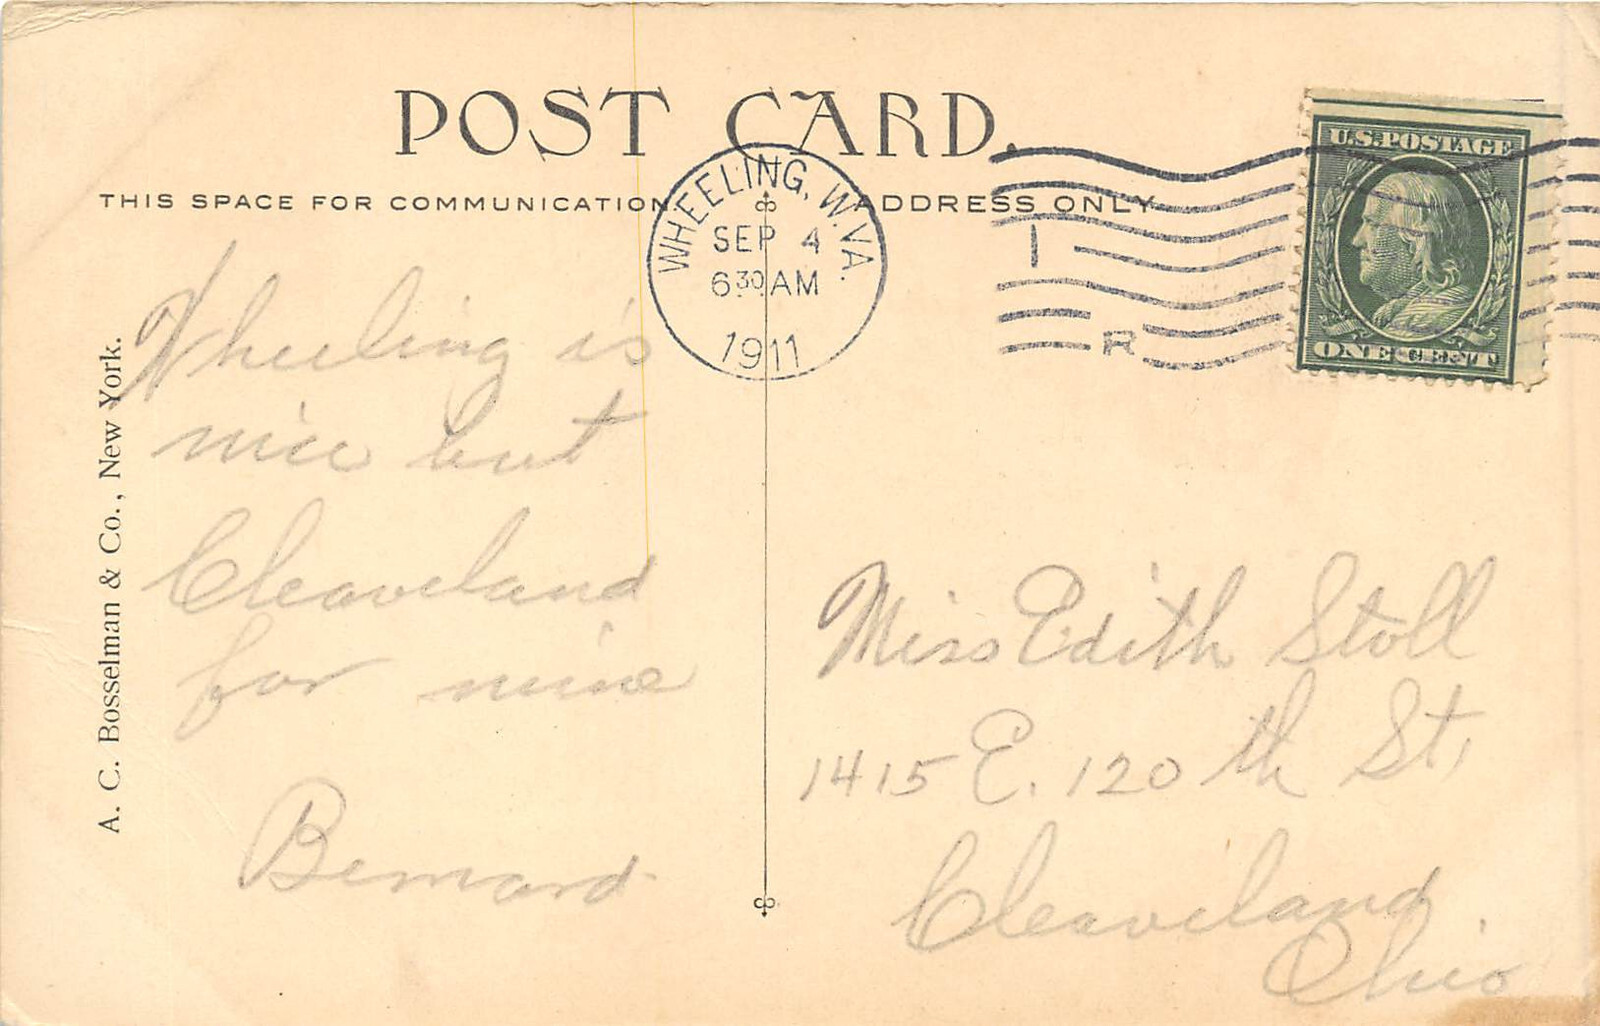 POST CARD.
THIS SPACE FOR COMMUNICATION
ADDRESS ONLY
WHEELING, W. VA.
SEP 4
6 30 AM
1911
1
R
U.S. POSTAGE
ONE CENT
Wheeling is
nice but
Cleaveland
for mine
Bernard
A. C. Bosselman & Co., New York.
Miss Edith Stoll
1415 E. 120 th St.
Cleaveland.
Ohio